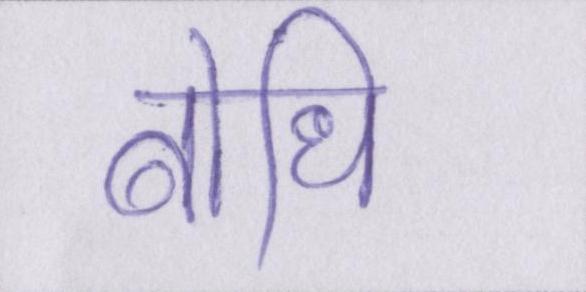 बोधि